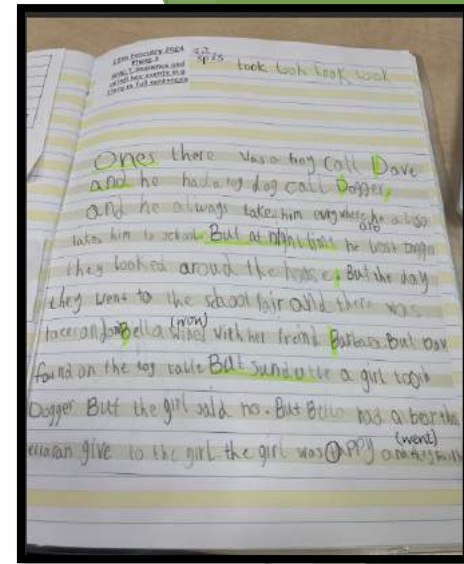 took took took took
Ones there was a boy call Dave
and he had a toy dog call Dogger,
and he always takes him everywhere he also
takes him to school. But at night time he lost Dogger
they looked aroud the house. But the day
they went to the school fair and there was
Bella (won) with her freind Barbara. But Dav
found on the toy table But sunde a girl took
Dogger But the girl said no. But Bella had a
give to the girl the girl was happy (went)